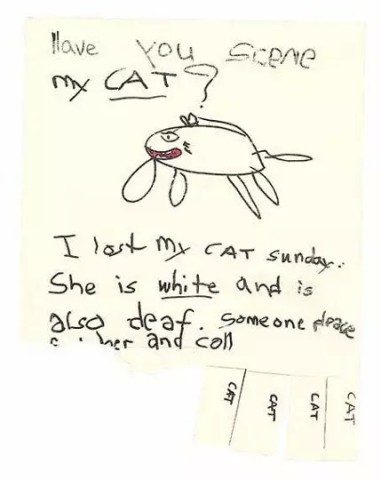 Have you scene
my CAT?
I lost my CAT sunday.
She is white and is
also deaf. someone please
her and coll
CAT
CAT
CAT
CAT